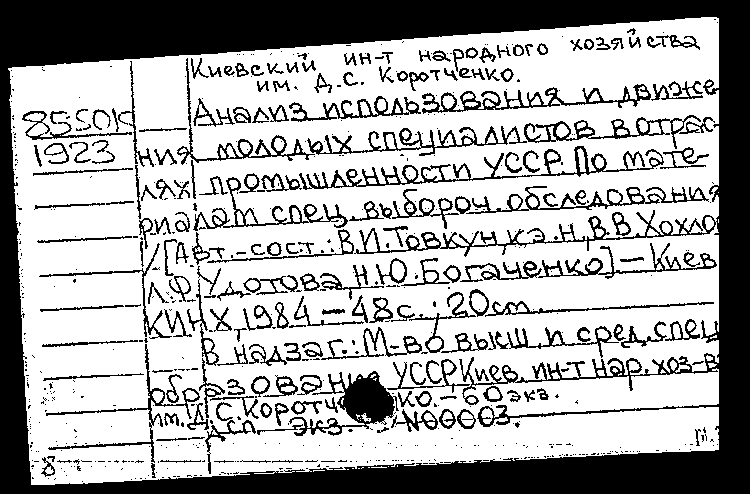 Киевский ин-т народного хозяйства
им. Д.С. Коротченко.
85SOK Анализ использования и движе
1923 ния молодых специалистов в отрас
лях промышленности УССР. По мате-
риалам спец. выбороч. обследования
/[Авт.-сост.: В.И. Товкун, к.э.н, В.В. Хохло
Л.Ф. Удотова, Н.Ю. Богаченко]. - Киев
КИНХ, 1984. - 48 с.; 20 cm.
В надзаг.: М-во высш. и сред. спец
образования УССР, Киев. ин-т нар. хоз-ва
им. Д.С. Коротч ко. - 60 экз.
ДСП. Экз N00003.
8